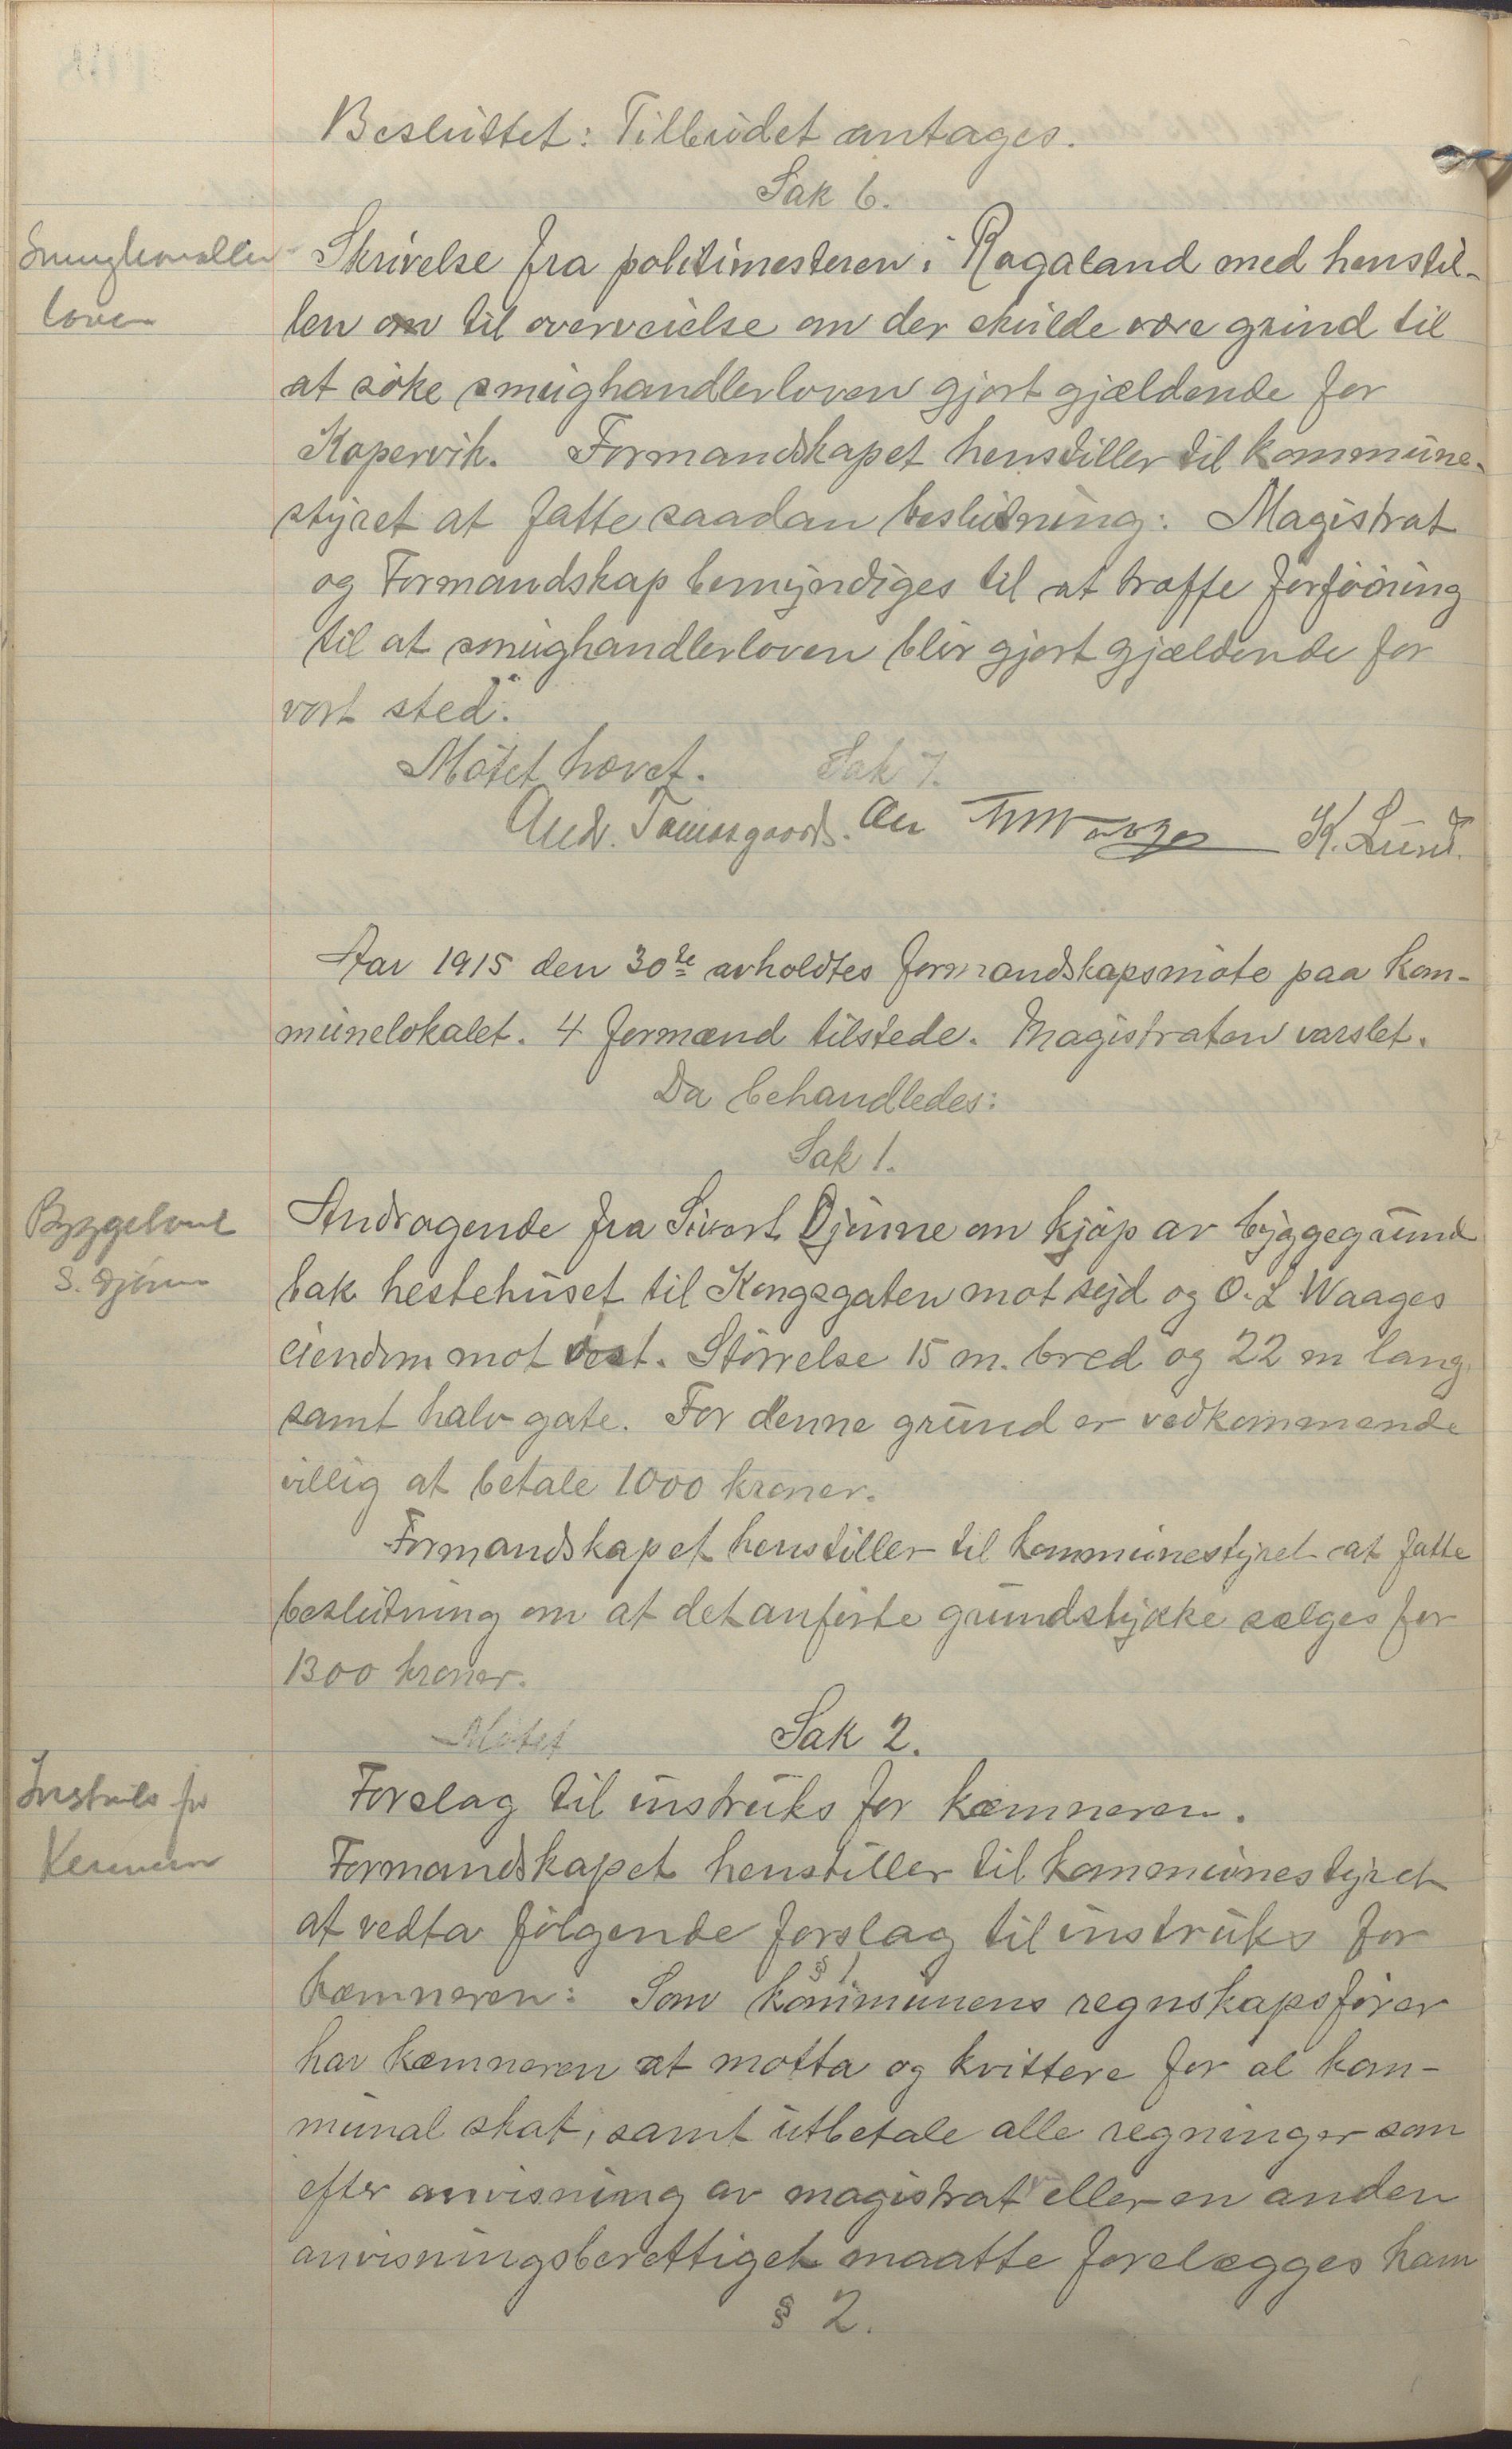 Besluttet: Tilbudet antages.
Sak 6.
Smughandler
loven
Skrivelse fra politimesteren i Rogaland med henstil-
len om til overveielse om der skulde være grund til
at söke smughandlerloven gjort gjældende for
Kopervik. Formandskapet henstiller til kommune-
styret at fatte saadan beslutning: Magistrat
og Formandskap bemyndiges til at træffe forföining
til at smughandlerloven blir gjort gjældende for
vort sted".
Mötet hævet. Sak 7.
K. Lund.
Aar 1915 den 30te avholdtes formandskapsmöte paa kom-
munelokalet. 4 formænd tilstede. Magistraten varslet.
Da behandledes:
Sak 1.
Byggetomt
S. Djönne
Andragende fra Sivert Djönne om kjöp av byggegrund
bak hestehuset til Kongsgaten mot syd og O. L Waages
eiendom mot vest. Störrelse 15 m. bred og 22 m lang
samt halv gate. For denne grund er vedkommende
villig at betale 1000 kroner.
Formandskapet henstiller til kommunestyret at fatte
beslutning om at det anförte grundstykke sælges for
1300 kroner.
Mötet Sak 2.
Instruks for
Kemneren
Forslag til instruks for kæmneren.
Formandskapet henstiller til kommunestyret
at vedta fölgende forslag til instruks for
§ 1
kæmneren: Som kommunens regnskapsförer
har kæmneren at motta og kvittere for al kom-
munal skat, samt utbetale alle regninger som
efter anvisning av magistrat eller en anden
anvisningsberettiget maatte forelægges ham
§ 2.